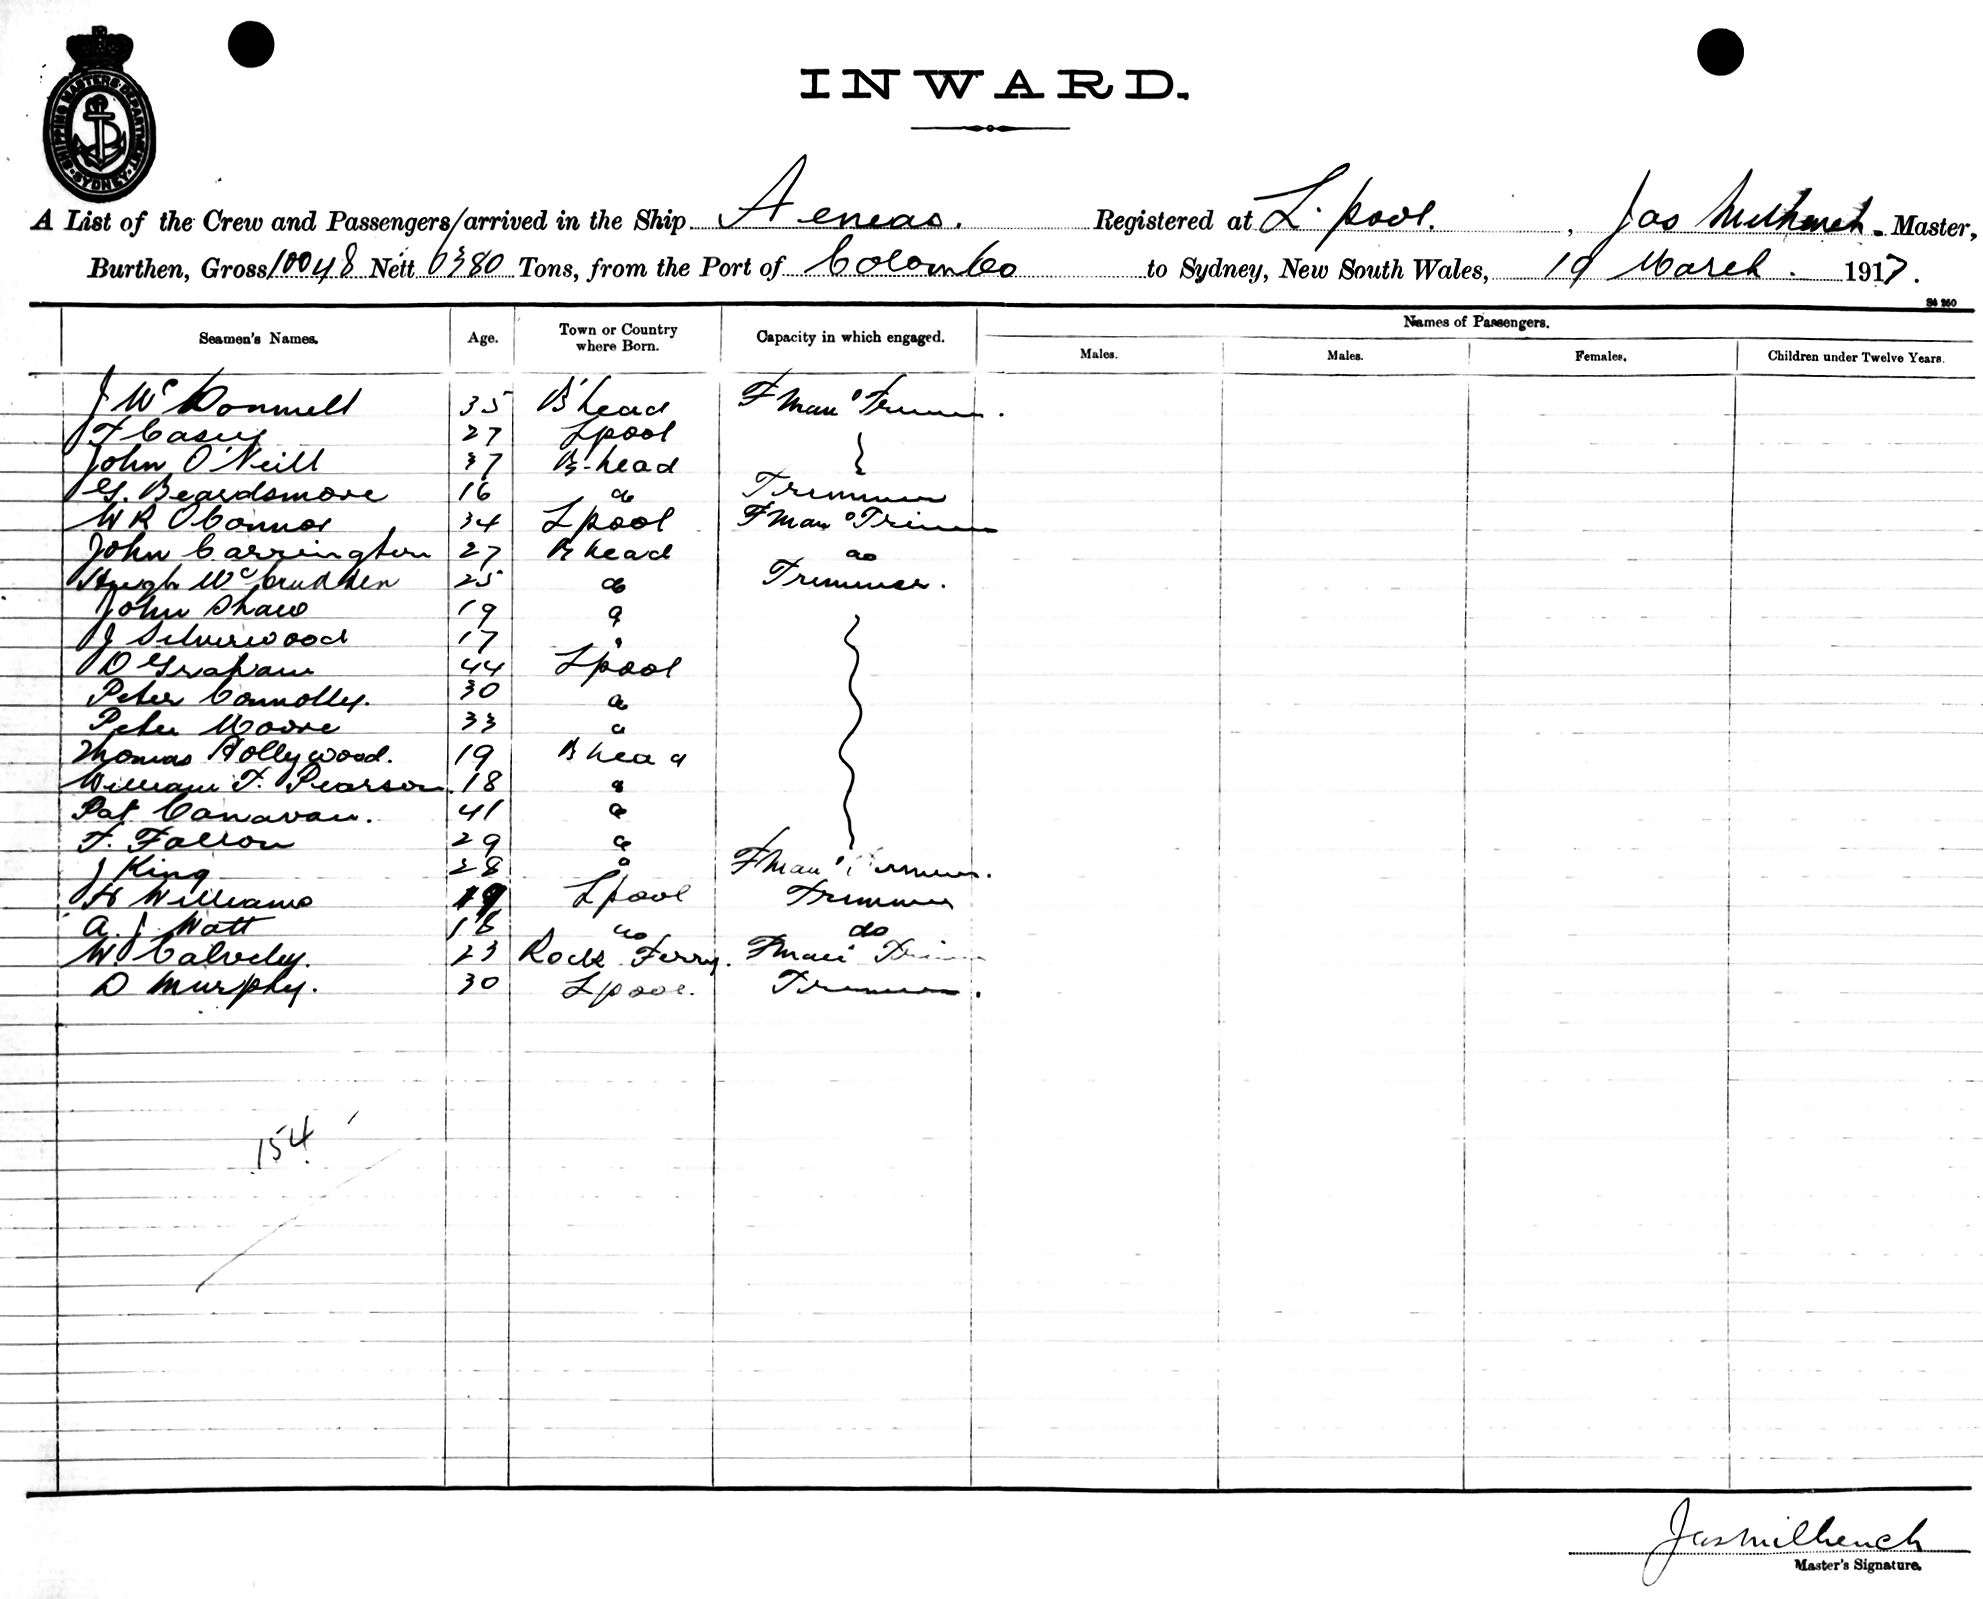 SHIPPING MASTERS DEPARTMENT SYDNEY
INWARD.
A List of the Crew and Passengers arrived in the Ship Aeneas. Registered at L'pool. , Jas Milhench. Master,
Burthen, Gross 10048 Nett 6380 Tons, from the Port of Colombo to Sydney, New South Wales, 19 March. 1917.
S4 260
Seamen's Names. Age. Town or Country where Born. Capacity in which engaged. Names of Passengers.
Males. Males. Females. Children under Twelve Years.
J McDonnell 35 B'head F'man & Trimmer.
T Casey 27 Lpool
John O'Neill 37 B-head
G. Beardsmore 16 do Trimmer
W R O'Connor 34 Lpool F'man & Trimmer
John Carrington 27 B'head do
Hugh McCrudden 25 do Trimmer.
John Shaw 19 "
J Silverwood 17 "
D Graham 44 Lpool
Peter Connolly. 30 do
Peter Moore 33 "
Thomas Hollywood. 19 B'head
William F. Pearson 18 "
Pat Canavan. 41 do
F. Fallon 29 do
J King 28 " F'man & Trimmer.
H Williams 19 Lpool Trimmer
A. J. Watt 18 do do
W. Calveley. 23 Rock Ferry. F'man & Trimmer
D Murphy. 30 Lpool. Trimmer.
154
Jas Milhench
Master's Signature.